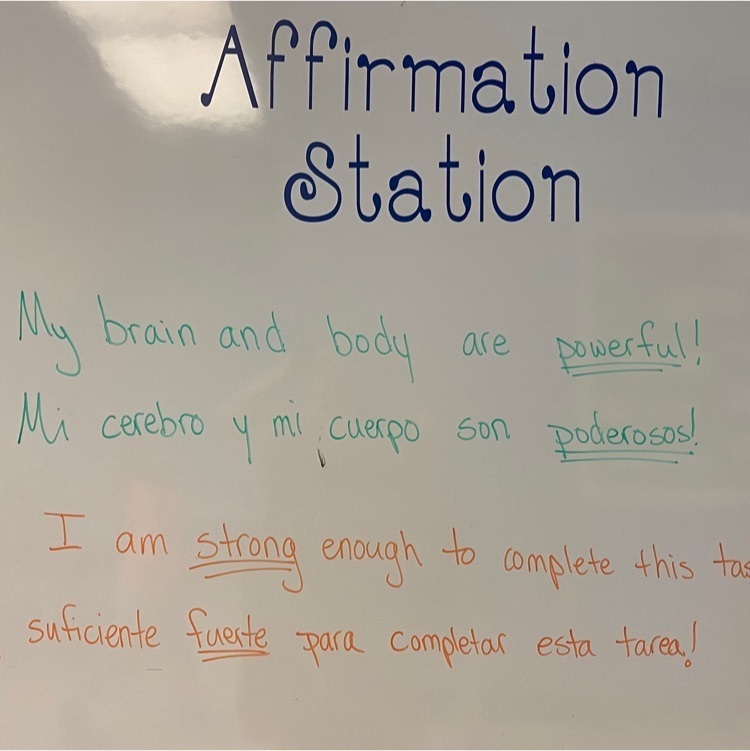 Affirmation
Station
My brain and body are powerful!
Mi cerebro y mi cuerpo son poderosos!
I am strong enough to complete this tas
suficiente fuerte para completar esta tarea!